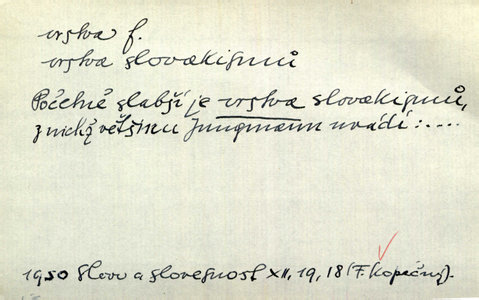 vrstva f.
vrstva slovakismů
Početně slabší je vrstva slovakismů,
z nichž většinu Jungmann uvádí :....
1950 Slovo a slovesnost XII, 19, 18 (F. Kopečný).